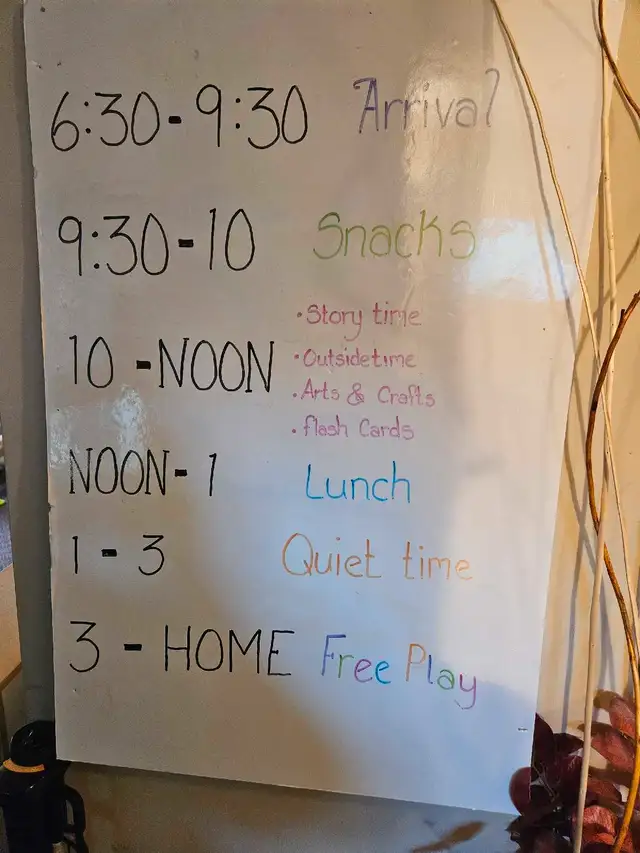 6:30-9:30 Arrival
9:30-10 Snacks
• Story time
10 - NOON • Outsidetime
• Arts & Crafts
• flash Cards
NOON- 1 Lunch
1 - 3 Quiet time
3 - HOME Free Play